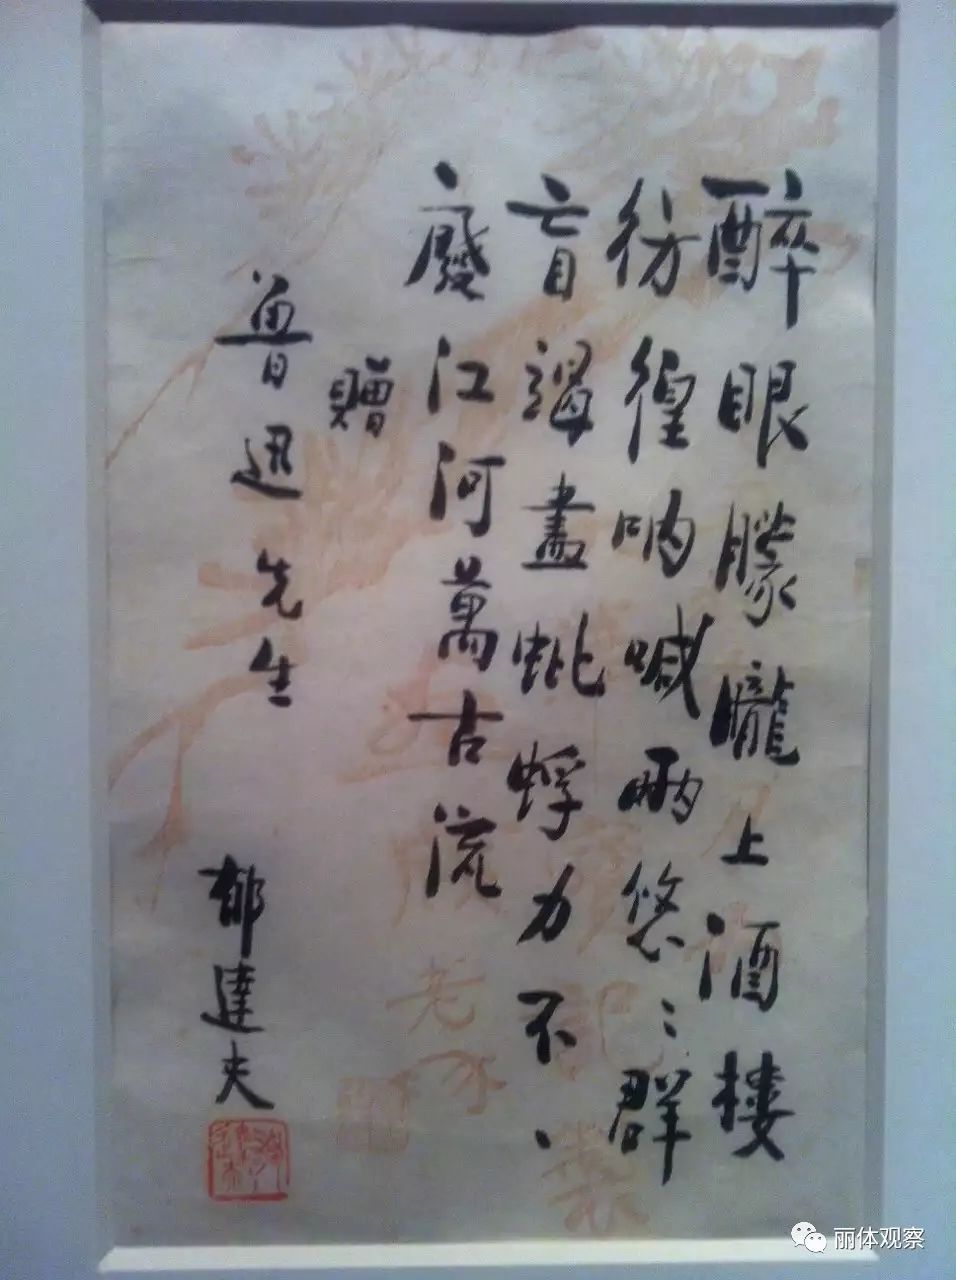 醉眼朦朧上酒樓
彷徨吶喊兩悠〻群
盲竭盡蚍蜉力不、
廢江河萬古流
贈
魯迅先生
郁達夫
丽体观察